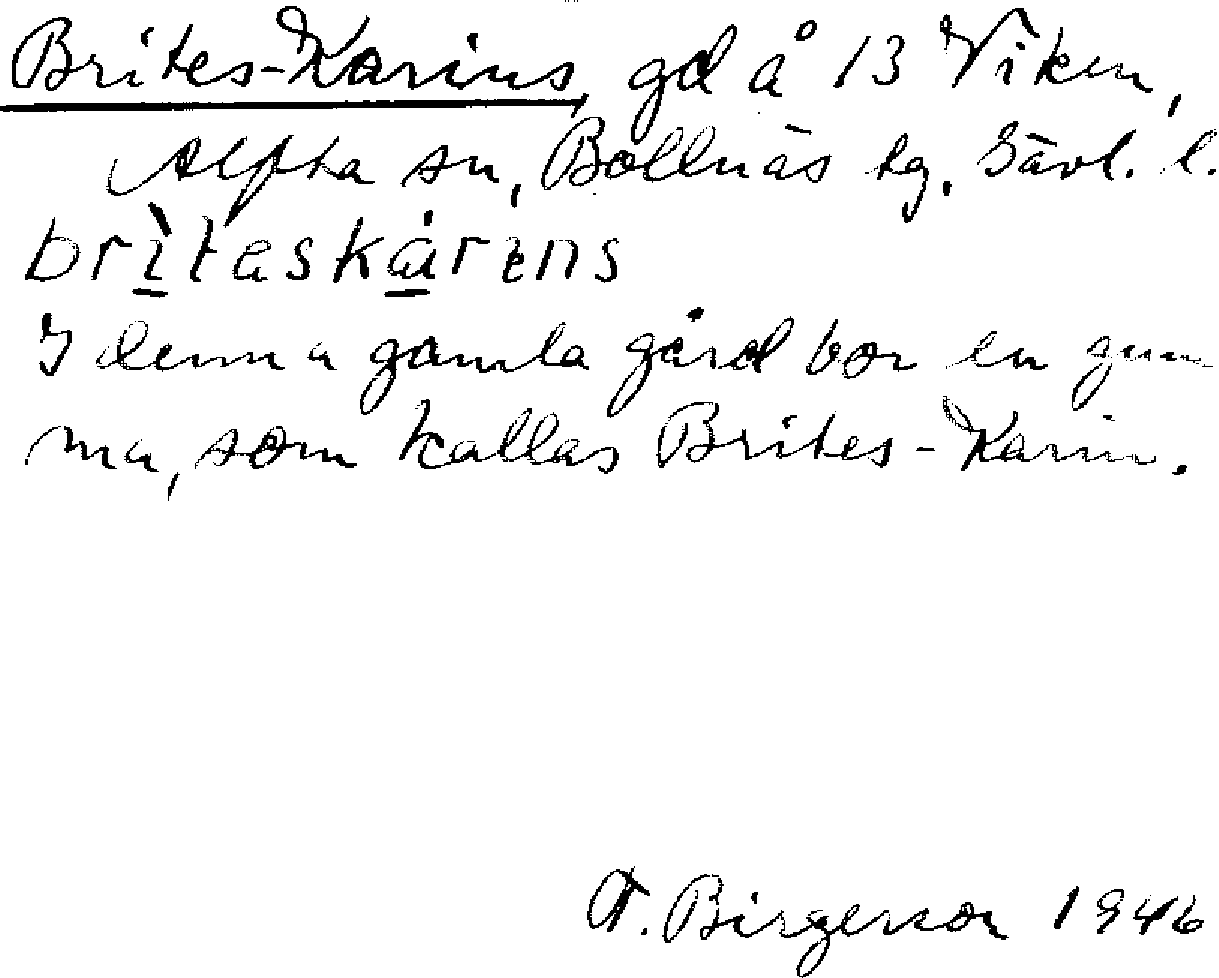 Brites-Karins, gd å 13 Viken,
Alfta sn, Bollnäs tg, Gävl. l.
britaskarins
I denna gamla gård bor en gum-
ma, som kallas Brites-Karin.
T. Birgerson 1946